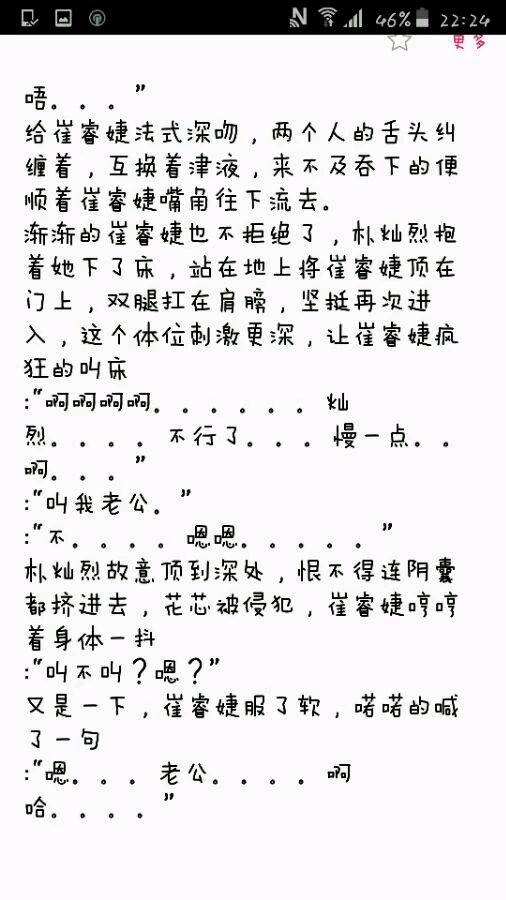 46% 22:24
更多
唔。。。”
给崔睿婕法式深吻，两个人的舌头纠
缠着，互换着津液，来不及吞下的便
顺着崔睿婕嘴角往下流去。
渐渐的崔睿婕也不拒绝了，朴灿烈抱
着她下了床，站在地上将崔睿婕顶在
门上，双腿扛在肩膀，坚挺再次进
入，这个体位刺激更深，让崔睿婕疯
狂的叫床
:“啊啊啊啊。。。。。。灿
烈。。。。不行了。。。慢一点。。
啊。。。”
:“叫我老公。”
:“不。。。。嗯嗯。。。。。”
朴灿烈故意顶到深处，恨不得连阴囊
都挤进去，花芯被侵犯，崔睿婕哼哼
着身体一抖
:“叫不叫？嗯？”
又是一下，崔睿婕服了软，喏喏的喊
了一句
:“嗯。。。老公。。。。啊
哈。。。。”